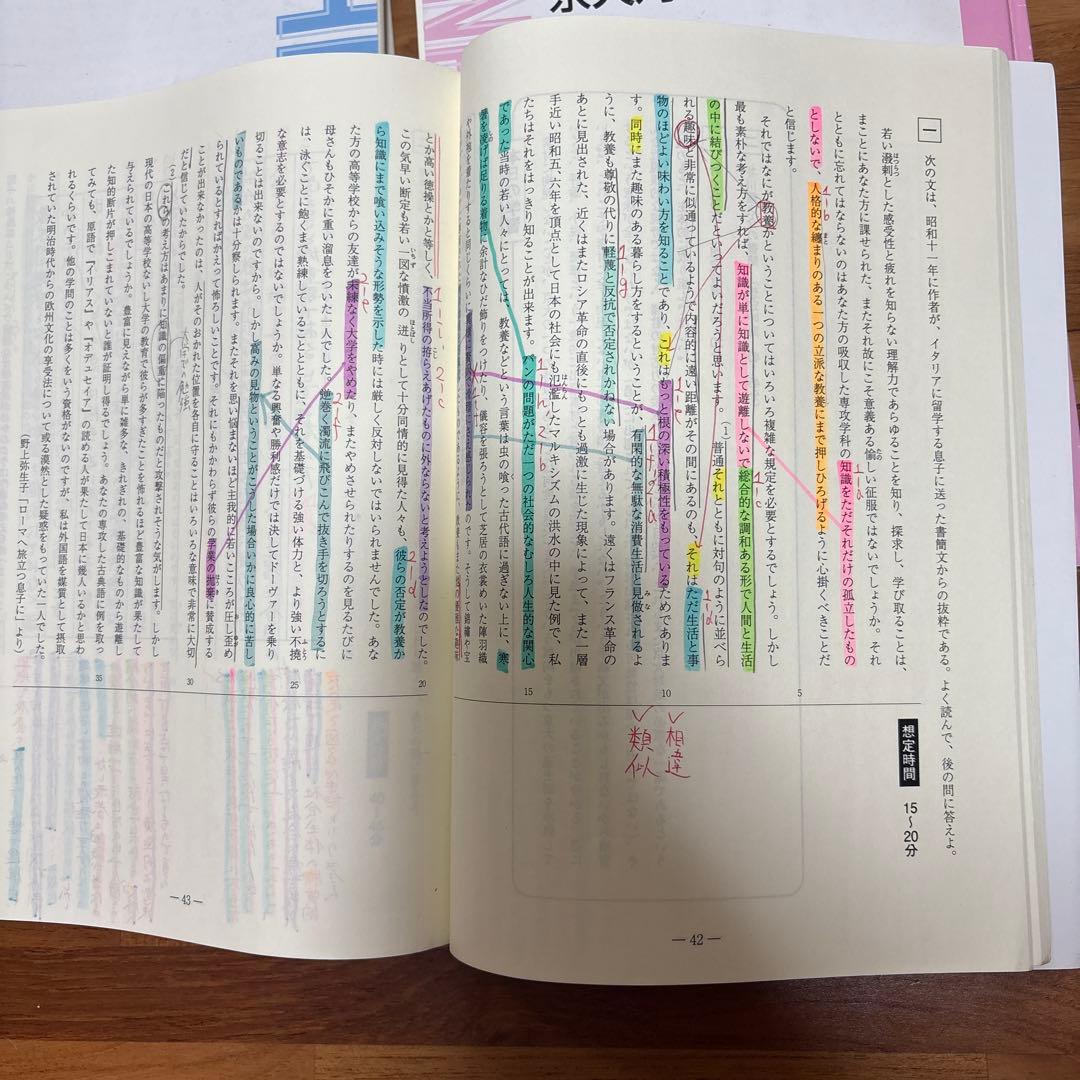 一
次の文は、昭和十一年に作者が、イタリアに留学する息子に送った書簡文からの抜粋である。よく読んで、後の問に答えよ。
想定時間 15〜20分
若い潑剌とした感受性と疲れを知らない理解力であらゆることを知り、探求し、学び取ることは、
まことにあなた方に課せられた、またそれ故にこそ意義ある愉しい征服ではないでしょうか。それ
とともに忘れてはならないのはあなた方の吸収した専攻学科の知識をただそれだけの孤立したもの
としないで、人格的な纏まりのある一つの立派な教養にまで押しひろげるように心掛くべきことだ
と信じます。
それではなにが教養かということについてはいろいろ複雑な規定を必要とするでしょう。しかし
最も素朴な考え方をすれば、知識が単に知識として遊離しないで総合的な調和ある形で人間と生活
の中に結びつくことだといってよいだろうと思います。(1)普通それとともに対句のように並べら
れる趣味と非常に似通っているようで内容的に遠い距離がその間にあるのも、それはただ生活と事
物のほどよい味わい方を知ることであり、これはもっと根の深い積極性をもっているためでありま
す。同時にまた趣味のある暮し方をするということが、有閑的な無駄な消費生活と見做されるよ
うに、教養も尊敬の代りに軽蔑と反抗で否定されかねない場合があります。遠くはフランス革命の
あとに見出された、近くはまたロシア革命の直後にもっとも過激に生じた現象によって、また一層
手近い昭和五、六年を頂点として日本の社会にも氾濫したマルキシズムの洪水の中に見た例で、私
たちはそれをはっきり知ることが出来ます。パンの問題がただ一つの社会的なむしろ人生的な関心
であった当時の若い人々にとっては、教養などという言葉は虫の喰った古代語に過ぎない上に、寒
暑を凌げば足りる着物に余計なひだ飾りをつけたり、儀容を張ろうとして芝居の衣裳めいた陣羽織
とか高い徳操とかと等しく、不当所得の拵らえあげたものに外ならないと考えようとしたのでした。
この気早い断定も若い一図な憤激の迸りとして十分同情的に見得た人々も、彼らの否定が教養か
ら知識にまで喰い込みそうな形勢を示した時には厳しく反対しないではいられませんでした。あな
た方の高等学校からの友達が未練なく大学をやめたり、またやめさせられたりするのを見るたびに
母さんもひそかに重い溜息をついた一人でした。逆巻く濁流に飛びこんで抜き手を切ろうとするに
は、泳ぐことに飽くまで熟練していることとともに、それを基礎づける強い体力と、より強い不撓
な意志を必要とするのではないでしょうか。単なる興奮や勝利感だけでは決してドーヴァーを乗り
切ることは出来ないのですから。しかし高みの見物ということがこうした場合いかに良心的に苦し
いものであるかは十分察しられます。またそれを思い悩まないほど主我的に若いこころが圧し歪め
られているとすればかえって怖ろしいことです。それにもかかわらず彼らの学業の抛棄に賛成する
ことが出来なかったのは、人がそのおかれた位置を各自に守ることはいろいろな意味で非常に大切
だと信じていたからでした。
(2)これらの考え方はあまりに知識の偏重に陥ったものだと攻撃されそうな気がします。しかし
現代の日本の高等学校ないし大学の教育で彼らが多すぎたことを怖れるほど豊富な知識が果たして
与えられているでしょうか。豊富に見えながら単に雑多な、きれぎれの、基礎的なものから遊離し
た知的断片が押しこまれていないと誰が証明し得るでしょう。あなたの専攻した古典語に例を取っ
てみても、原語で『イリアス』や『オデュセイア』の読める人が果たして日本に幾人いるかと思わ
れるくらいです。他の学問のことは多くをいう資格がないのですが、私は外国語を媒質として摂取
されていた明治時代からの欧州文化の享受法について或る漠然とした疑惑をもっていた一人でした。
(野上弥生子「ローマへ旅立つ息子に」より)
5
10
15
20
25
30
35
相違
類似
1-b
1-c
1-d
1-e
1-g
2-d
— 42 —
— 43 —